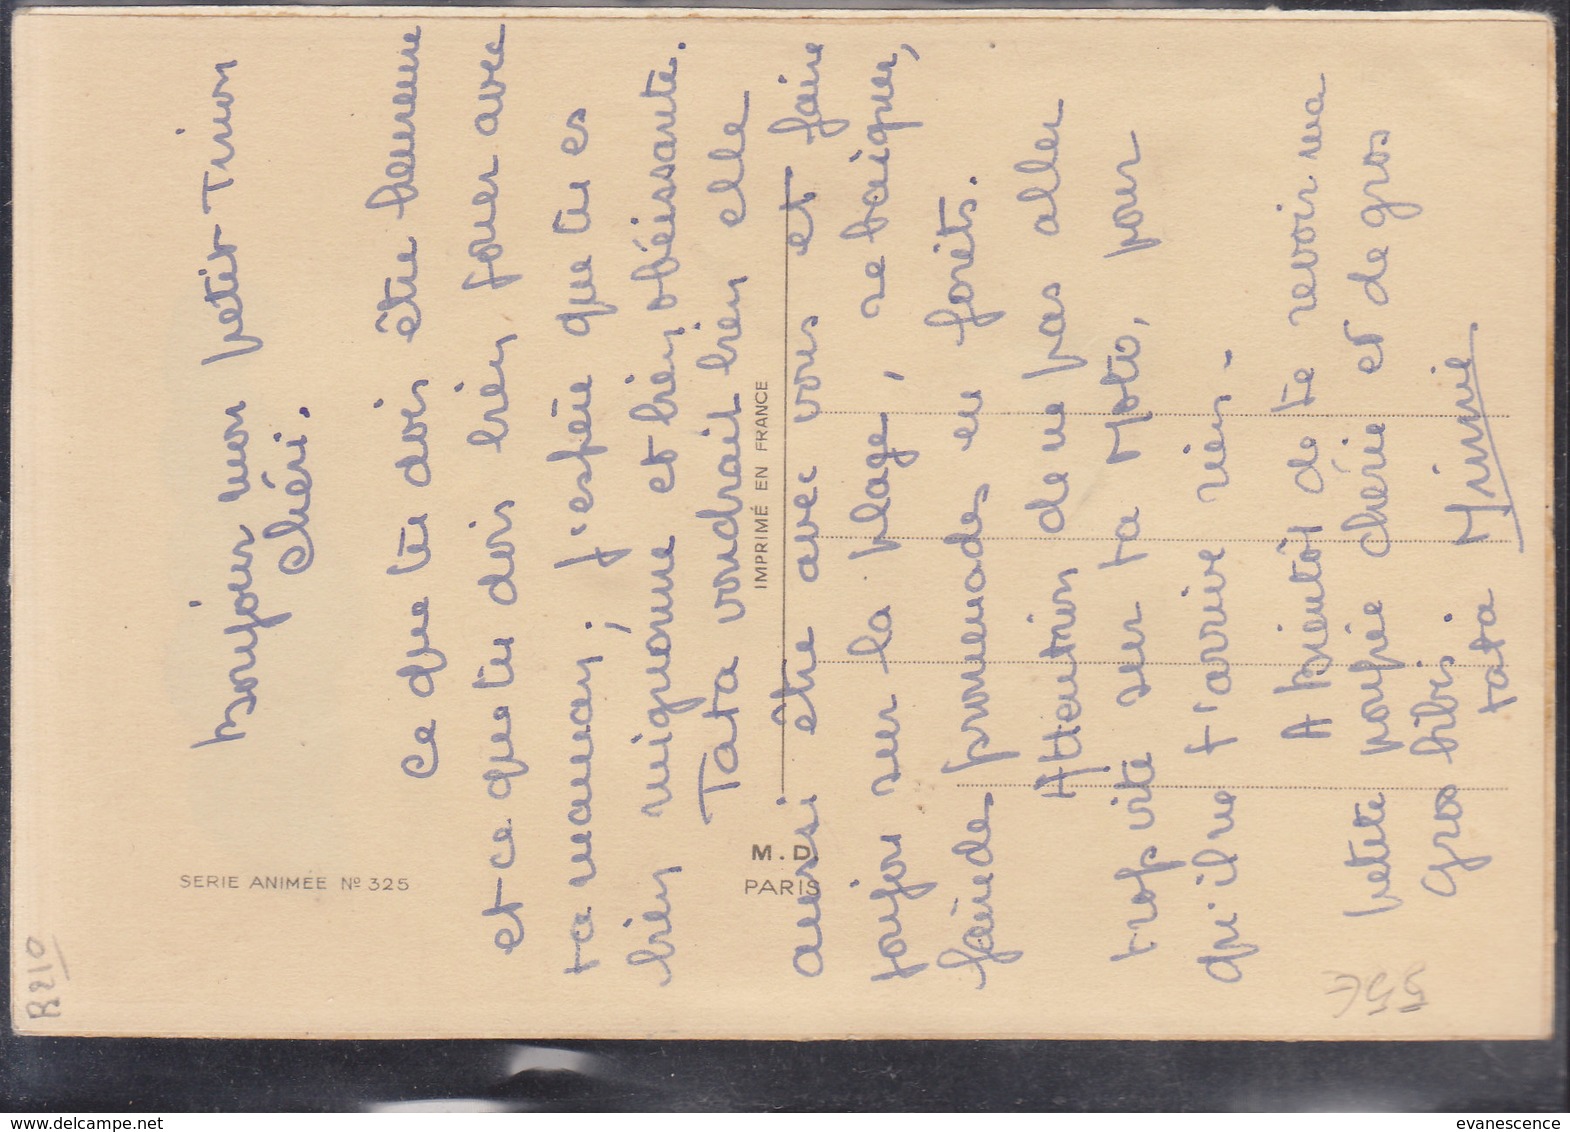 Bonjour mon petit Trinon
chéri.
Ce que tu dois être heureuse
et ce que tu dois bien jouer avec
ta maman ; j'espère que tu es
bien mignonne et bien obéissante.
Tata voudrait bien elle
aussi être avec vous et faire
joujou sur la plage, se baigner,
faire des promenades en forêts.
Attention de ne pas aller
trop vite sur ta Moto, pour
qu'il ne t'arrive rien -
A bientôt de te revoir ma
petite poupée chérie et de gros
gros bibis.
tata Minnie
SERIE ANIMÉE Nº 325
M. D.
PARIS
IMPRIMÉ EN FRANCE
B210
55€
evanescence
delcampe.net